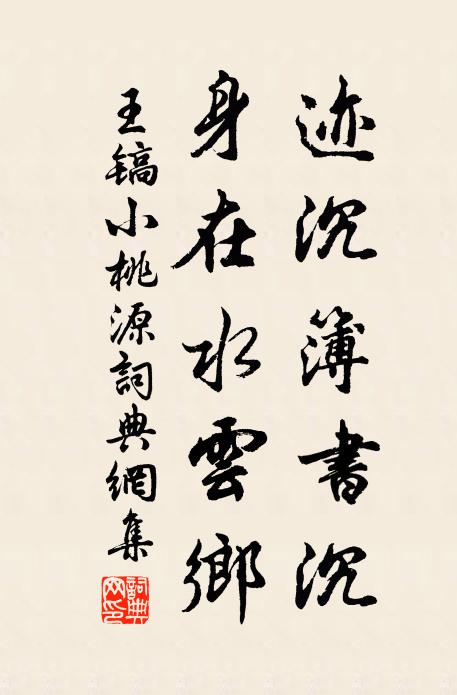 迹沉簿書沉
身在水雲鄉
王鎬小桃源詞典網集
詞典
网印